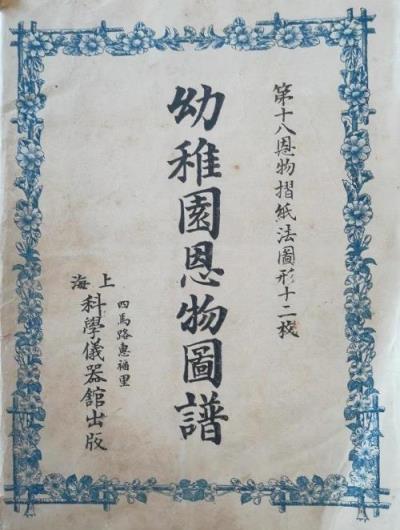 第十八恩物摺紙法圖形十二枚
幼稚園恩物圖譜
四馬路惠福里
上海科學儀器館出版